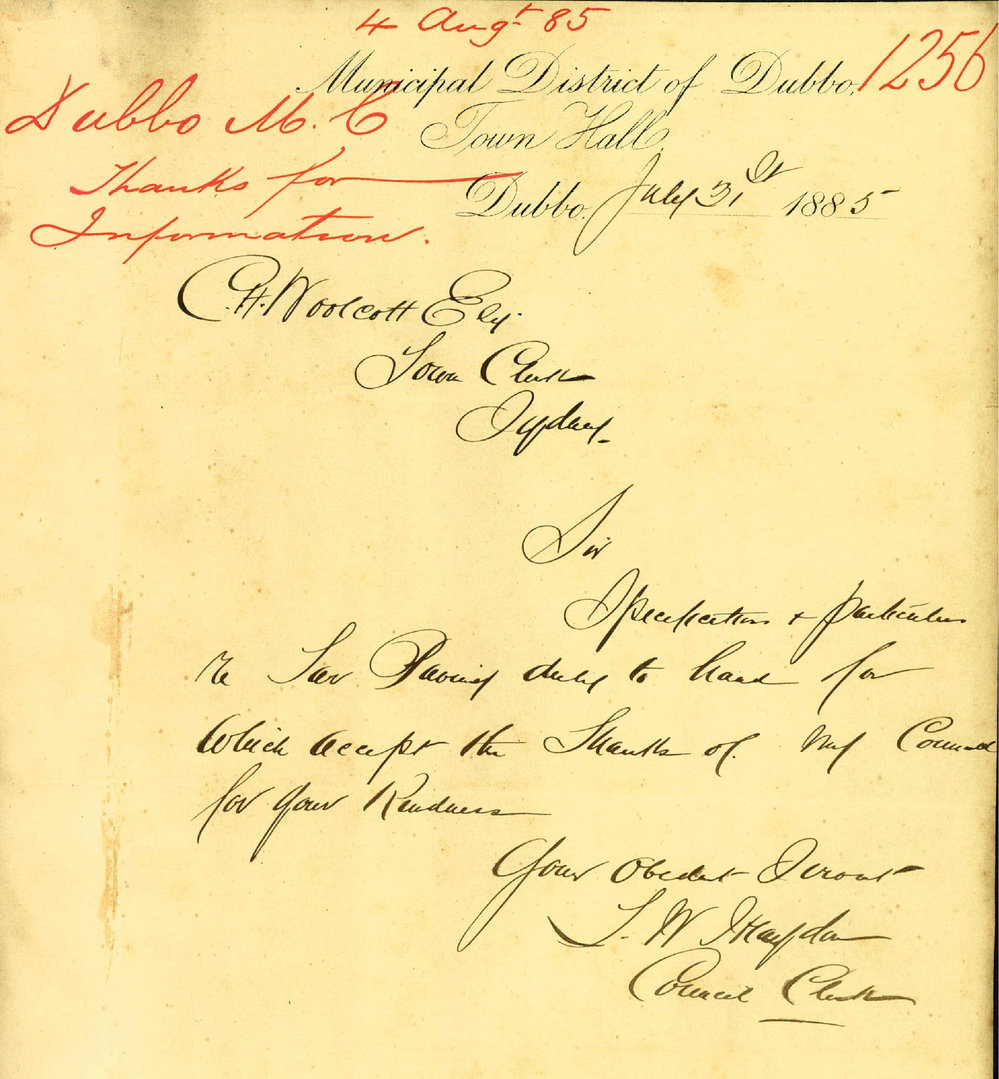 4 Augt 85
1256
Municipal District of Dubbo,
Dubbo M. C
Town Hall,
Thanks for
Dubbo, July 31st 1885
Information.
C.H. Woolcott Esq.
Town Clerk
Sydney.
Sir
Specifications & particulars
re Tar Paving duly to hand for
which accept the Thanks of my Council
for your Kindness
Your Obedient Servant
W
Council Clerk